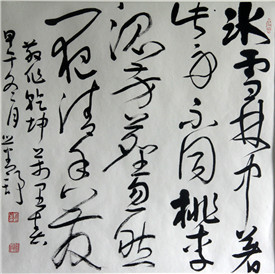 冰雪林中著
此身不同桃李
混芳塵忽然
一夜清香發
散作乾坤萬里春
甲午冬月